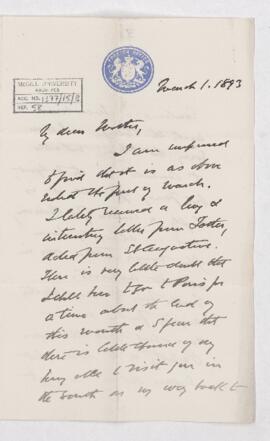 McGILL UNIVERSITY
ARCHIVES
ACC. NO. 1277/15/2
REF. 58
March 1. 1893
My dear Mother,
I am
that it is as above
the first of March.
I lately received a long &
interesting letter from Foster,
dated from St Augustine.
There is very little doubt that
I shall have to go to Paris for
a time about the end of
this month & I fear that
there is little chance of my
being able to visit you in
the South on my way back to